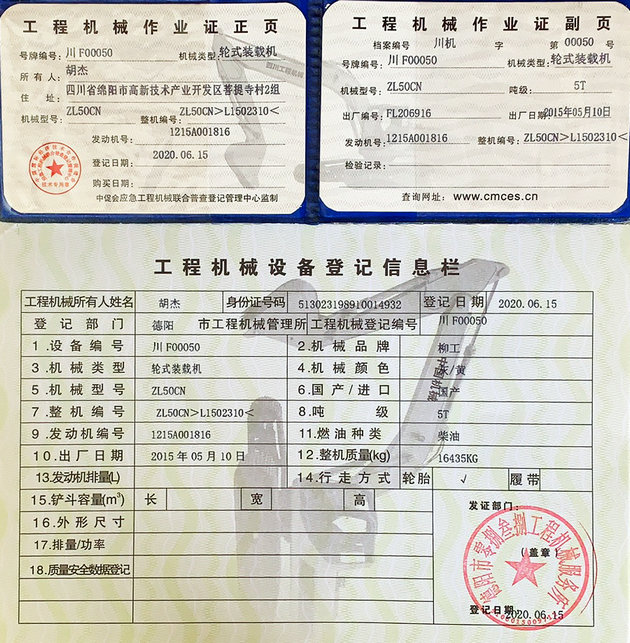 工程机械作业证正页
号牌编号: 川 F00050 机械类型: 轮式装载机
所有人: 胡杰
住址: 四川省绵阳市高新技术产业开发区菩提寺村2组
机械型号: ZL50CN 整机编号: ZL50CN>L1502310<
发动机号: 1215A001816
登记日期: 2020.06.15
购买日期:
技术专用章
中促会应急工程机械联合普查登记管理中心监制
工程机械作业证副页
档案编号 川机 字 第 00050 号
号牌编号: 川 F00050 机械类型: 轮式装载机
机械型号: ZL50CN 吨级: 5T
出厂编号: FL206916 出厂日期: 2015年05月10日
发动机号: 1215A001816 整机编号: ZL50CN>L1502310<
检验记录:
查询网址: www.cmces.cn
工程机械设备登记信息栏
工程机械所有人姓名 胡杰 身份证号码 513023198910014932 登记日期 2020.06.15
登记部门 德阳 市工程机械管理所 工程机械登记编号 川 F00050
1.设备编号 川 F00050 2.机械品牌 柳工
3.机械类型 轮式装载机 4.机械颜色 灰/黄
5.机械型号 ZL50CN 6.国产/进口 国产
7.整机编号 ZL50CN>L1502310< 8.吨级 5T
9.发动机编号 1215A001816 11.燃油种类 柴油
10.出厂日期 2015年05月10日 12.整机质量(kg) 16435KG
13.发动机排量(L) 14.行走方式 轮胎 √ 履带
15.铲斗容量(m³) 长 宽 高
16.外形尺寸
17.排量/功率
18.质量安全数据登记
发证部门:
(盖章)
德阳市零捌叁捌工程机械服务所
登记日期 2020.06.15
中国机械
四川工程机械